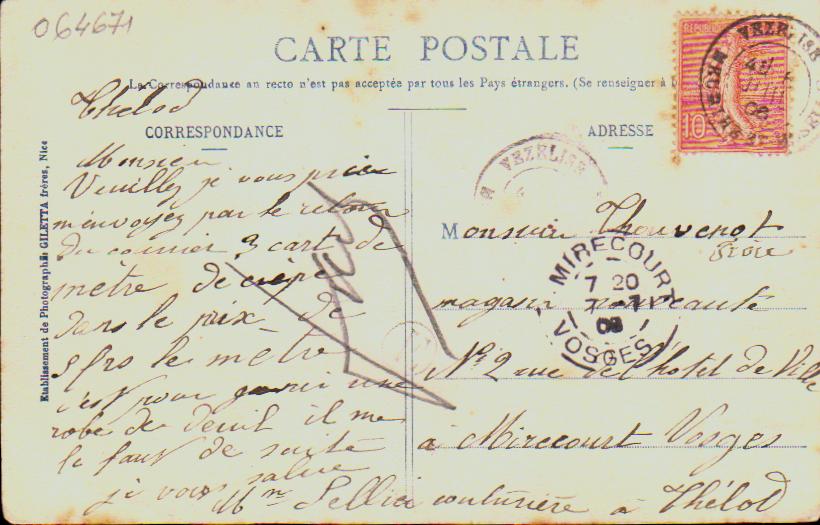 064671
CARTE POSTALE
La Correspondance au recto n'est pas acceptée par tous les Pays étrangers. (Se renseigner à
Thélod
CORRESPONDANCE
Monsieur
Veuillez je vous prie
m'envoyez par le retour
du courrier 3 cart de
mètre de crêpe
dans le prix de
5 frs le metre
c'est pour garnir une
robe de deuil il me
le faut de suite
je vous salue
Mme couturière à Thélod
ADRESSE
Monsieur Thouvenot
frère
magasin nouveauté
No 2 rue de l'hôtel de Ville
à Mirecourt Vosges
Etablissement de Photographie GILETTA frères, Nice
VEZELISE
10
VEZELISE
MIRECOURT
7 20
7 - 7
08
VOSGES